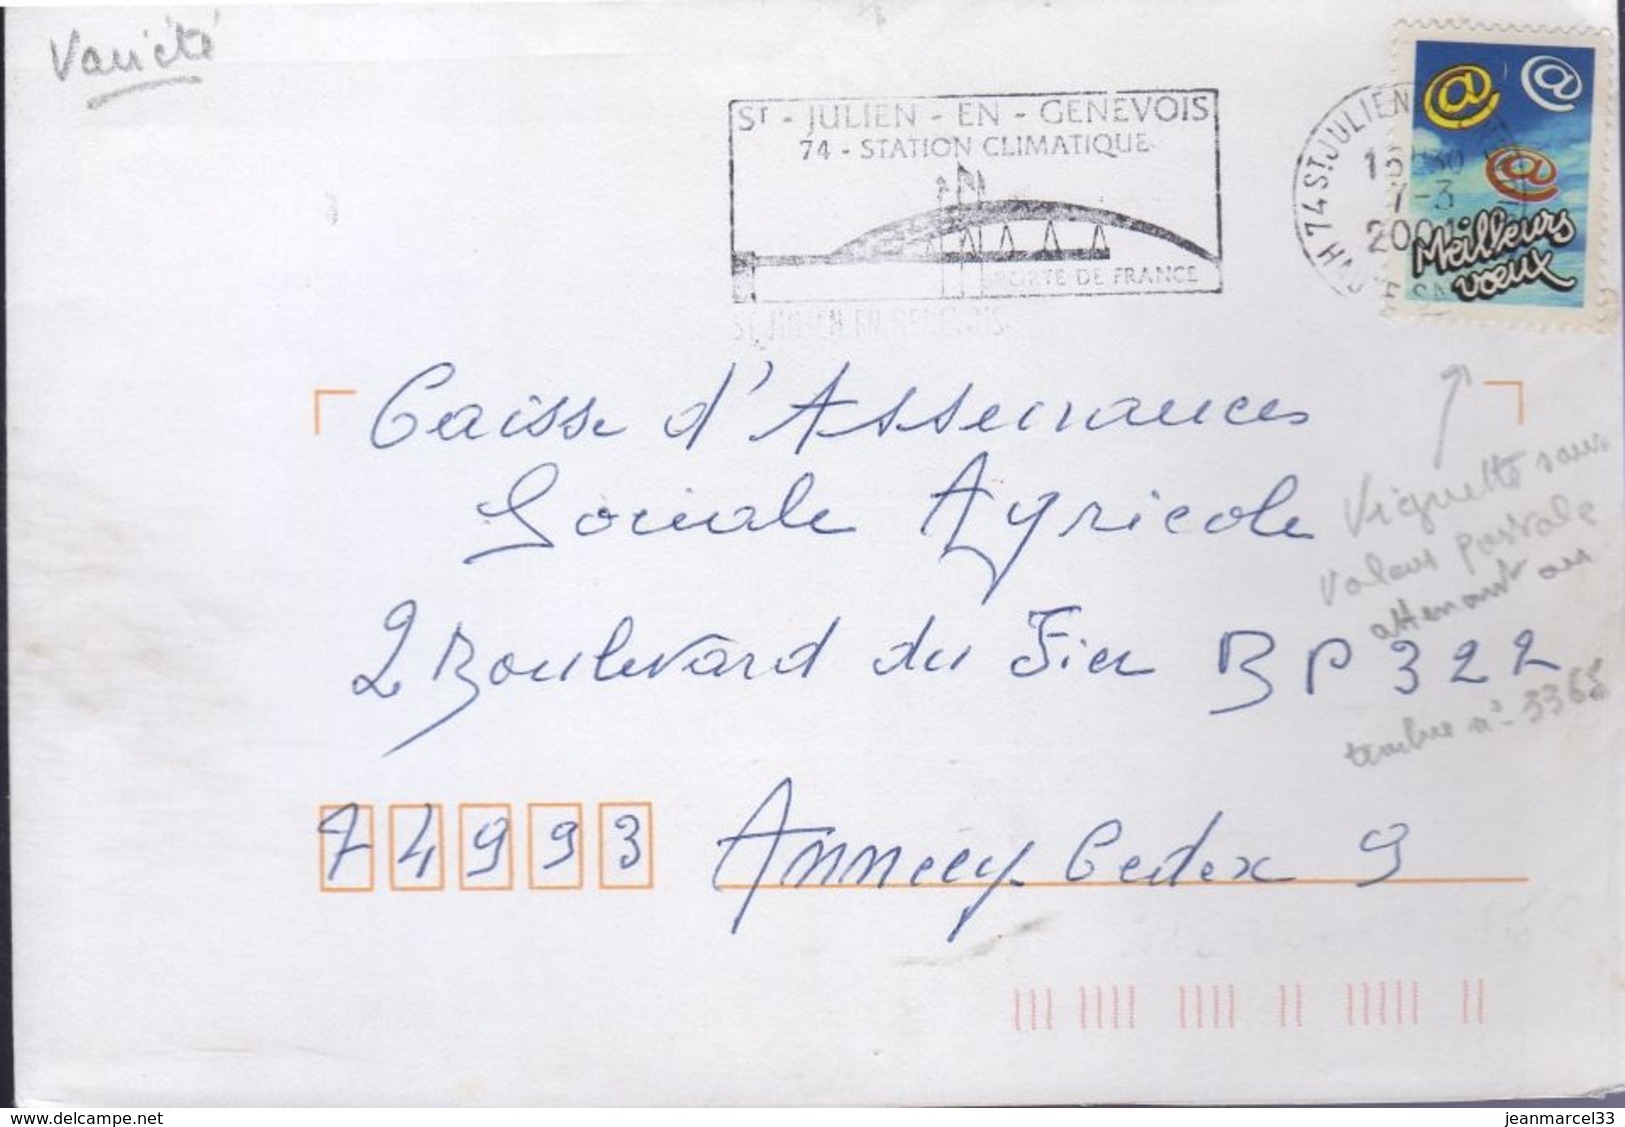 Variété
ST - JULIEN - EN - GENEVOIS
74 - STATION CLIMATIQUE
PORTE DE FRANCE
ST JULIEN EN GENEVOIS
74 ST. JULIEN
7-3
2001
Meilleurs
vœux
Caisse d'Assurances
Sociale Agricole
2 Boulevard du Fier BP 322
74993 Annecy Cedex 9
Vignette sans
valeur postale
attenant au
timbre n° 3365
www.delcampe.net
jeanmarcel33